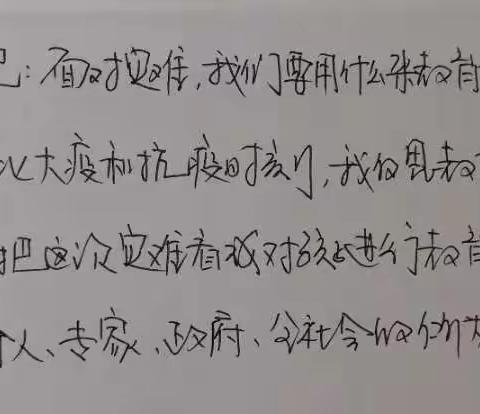 ：面对灾难，我们要用什么来教育
大疫和抗疫时刻，我们思教
把这次灾难看成对孩子进行教育
人、专家、政府、全社会的